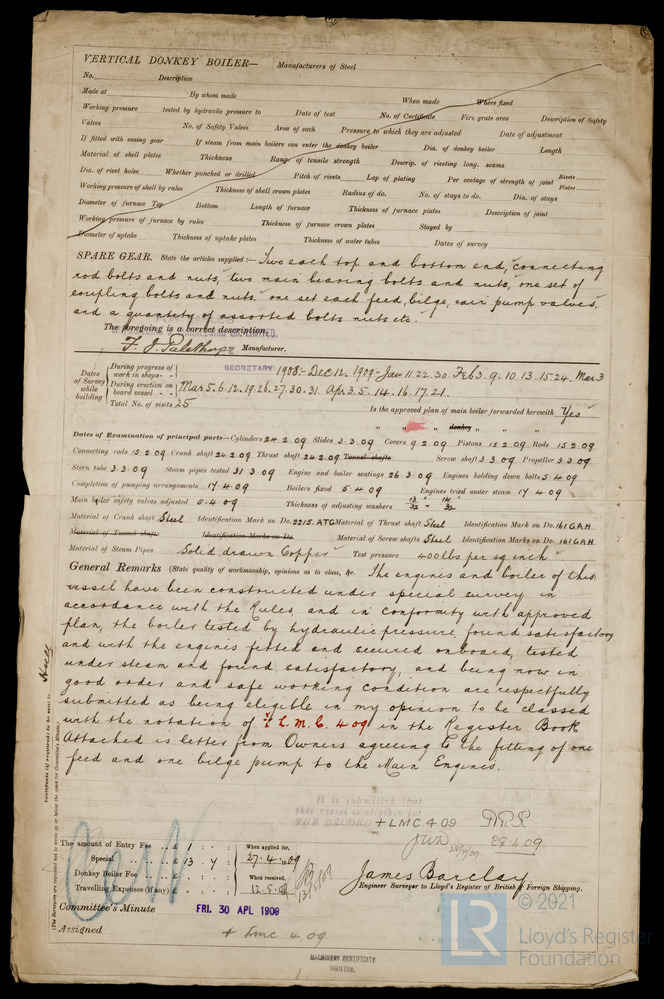 VERTICAL DONKEY BOILER— Manufacturers of Steel
No. Description
Made at By whom made When made Where fixed
Working pressure tested by hydraulic pressure to Date of test No. of Certificate Fire grate area Description of Safety
Valves No. of Safety Valves Area of each Pressure to which they are adjusted Date of adjustment
If fitted with easing gear If steam from main boilers can enter the donkey boiler Dia. of donkey boiler Length
Material of shell plates Thickness Range of tensile strength Descrip. of riveting long. seams
Dia. of rivet holes Whether punched or drilled Pitch of rivets Lap of plating Per centage of strength of joint Rivets Plates
Working pressure of shell by rules Thickness of shell crown plates Radius of do. No. of stays to do. Dia. of stays
Diameter of furnace Top Bottom Length of furnace Thickness of furnace plates Description of joint
Working pressure of furnace by rules Thickness of furnace crown plates Stayed by
Diameter of uptake Thickness of uptake plates Thickness of water tubes Dates of survey
SPARE GEAR. State the articles supplied:— Two each top and bottom end, connecting
rod bolts and nuts, two main bearing bolts and nuts, one set of
coupling bolts and nuts, one set each feed, bilge, air pump valves,
and a quantity of assorted bolts nuts etc.
The foregoing is a correct description,
Manufacturer.
SECRETARY
Dates of Survey while building
During progress of work in shops - - 1908:- Dec 12. 1909:- Jan 11. 22. 30 Feb 3. 9. 10 13. 15. 24. Mar 3
During erection on board vessel - - Mar 5. 6. 12. 19. 26. 27. 30. 31. Apr 3. 5. 14. 16. 17. 21.
Total No. of visits 25
Is the approved plan of main boiler forwarded herewith Yes
" " donkey " " "
Dates of Examination of principal parts—Cylinders 24 2 09 Slides 3 3 09 Covers 9 2 09 Pistons 15 2 09 Rods 15 2 09
Connecting rods 15 2 09 Crank shaft 24 2 09 Thrust shaft 24 2 09 Tunnel shafts Screw shaft 3 3 09 Propeller 3 3 09
Stern tube 3 3 09 Steam pipes tested 31 3 09 Engine and boiler seatings 26 3 09 Engines holding down bolts 5 4 09
Completion of pumping arrangements 17 4 09 Boilers fixed 5 4 09 Engines tried under steam 17 4 09
Main boiler safety valves adjusted 5 4 09 Thickness of adjusting washers
Material of Crank shaft Steel Identification Mark on Do. 2215. ATG Material of Thrust shaft Steel Identification Mark on Do. 161 GAH
Material of Tunnel shafts Identification Marks on Do. Material of Screw shafts Steel Identification Marks on Do. 161 GAH
Material of Steam Pipes Solid drawn Copper Test pressure 400 lbs per sq inch
General Remarks (State quality of workmanship, opinions as to class, &c. The engines and boiler of this
vessel have been constructed under special survey in
accordance with the Rules, and in conformity with approved
plan, the boiler tested by hydraulic pressure, found satisfactory
and with the engines fitted and secured on board, tested
under steam and found satisfactory, and being now in
good order and safe working condition are respectfully
submitted as being eligible in my opinion to be classed
with the notation of + L. M. C. 4 09 in the Register Book
Attached is letter from Owners agreeing to the fitting of one
feed and one bilge pump to the Main Engines.
Hull
It is submitted that
this vessel is eligible for
THE RECORD
+ LMC 4 09
28 4 09
The amount of Entry Fee .. £ 1 : : When applied for,
Special .. .. £ 13 : 4 : 27. 4. 1909
Donkey Boiler Fee .. .. £ : : When received,
Travelling Expenses (if any) £ : : 12. 5. 09
James Barclay
Engineer Surveyor to Lloyd's Register of British & Foreign Shipping.
Committee's Minute FRI. 30 APL 1909
Assigned + Lmc 4. 09
MACHINERY CERTIFICATE
WRITTEN.
LR
© 2021
Lloyd's Register
Foundation